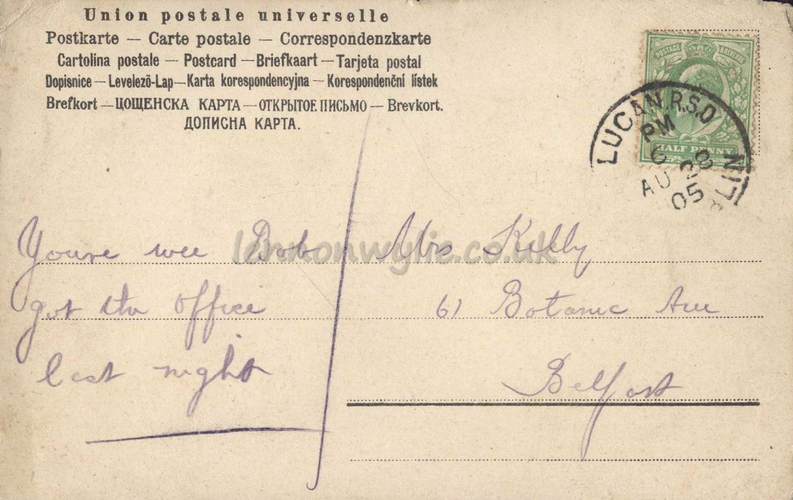 Union postale universelle
Postkarte — Carte postale — Correspondenzkarte
Cartolina postale — Postcard — Briefkaart — Tarjeta postal
Dopisnice — Levelező-Lap — Karta korespondencyjna — Korespondenční lístek
Brefkort — ЦОЩЕНСКА КАРТА — ОТКРЫТОЕ ПИСЬМО — Brevkort.
ДОПИСНА КАРТА.
POSTAGE
HALF PENNY
LUCAN R.S.O
PM
AU 28
05
Youre wee Bob
got the office
last night
Mrs Kelly
61 Botanic Ave
Belfast
lennonwylie.co.uk